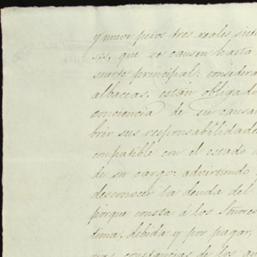 y unos pesos tres reales siete
que se causen hasta
suerte principal; considera
albaceas, están obligado
conciencia de su causa
brir sus responsabilidade
compatible con el estado
de su cargo; advirtiendo
desconocer la deuda del
porque consta á los Señores
tima, debida y por pagar,
constancias de los au